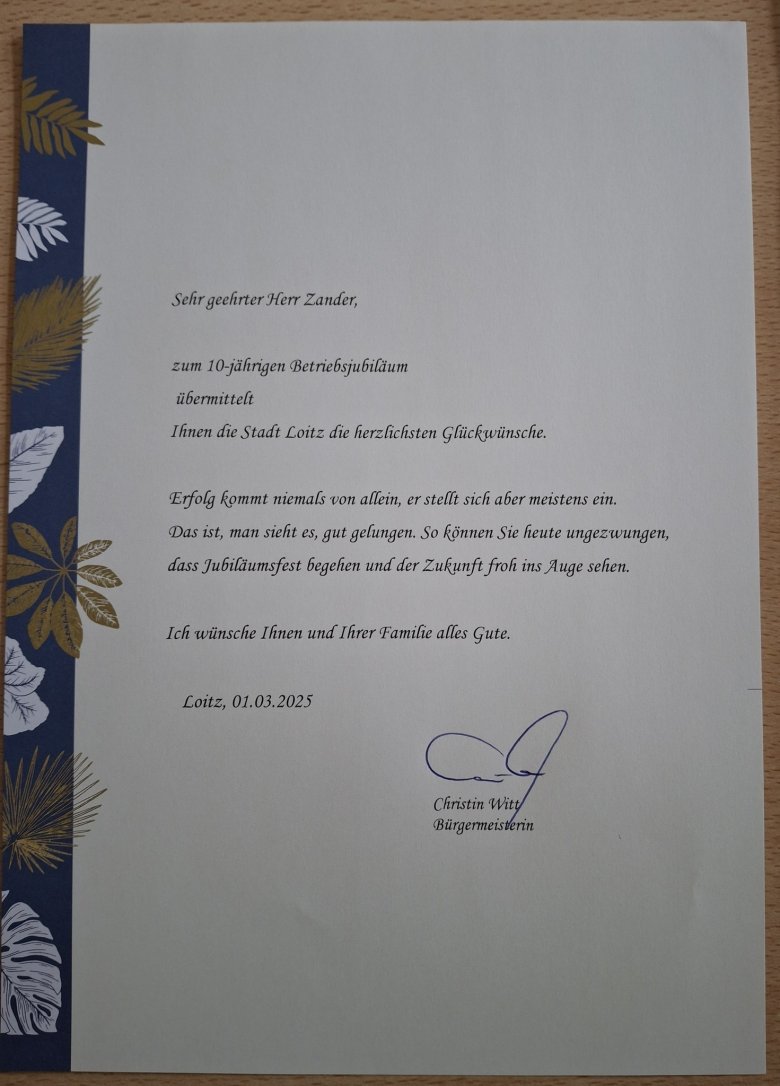 Sehr geehrter Herr Zander,
zum 10-jährigen Betriebsjubiläum
übermittelt
Ihnen die Stadt Loitz die herzlichsten Glückwünsche.
Erfolg kommt niemals von allein, er stellt sich aber meistens ein.
Das ist, man sieht es, gut gelungen. So können Sie heute ungezwungen,
dass Jubiläumsfest begehen und der Zukunft froh ins Auge sehen.
Ich wünsche Ihnen und Ihrer Familie alles Gute.
Loitz, 01.03.2025
Christin Witt
Bürgermeisterin